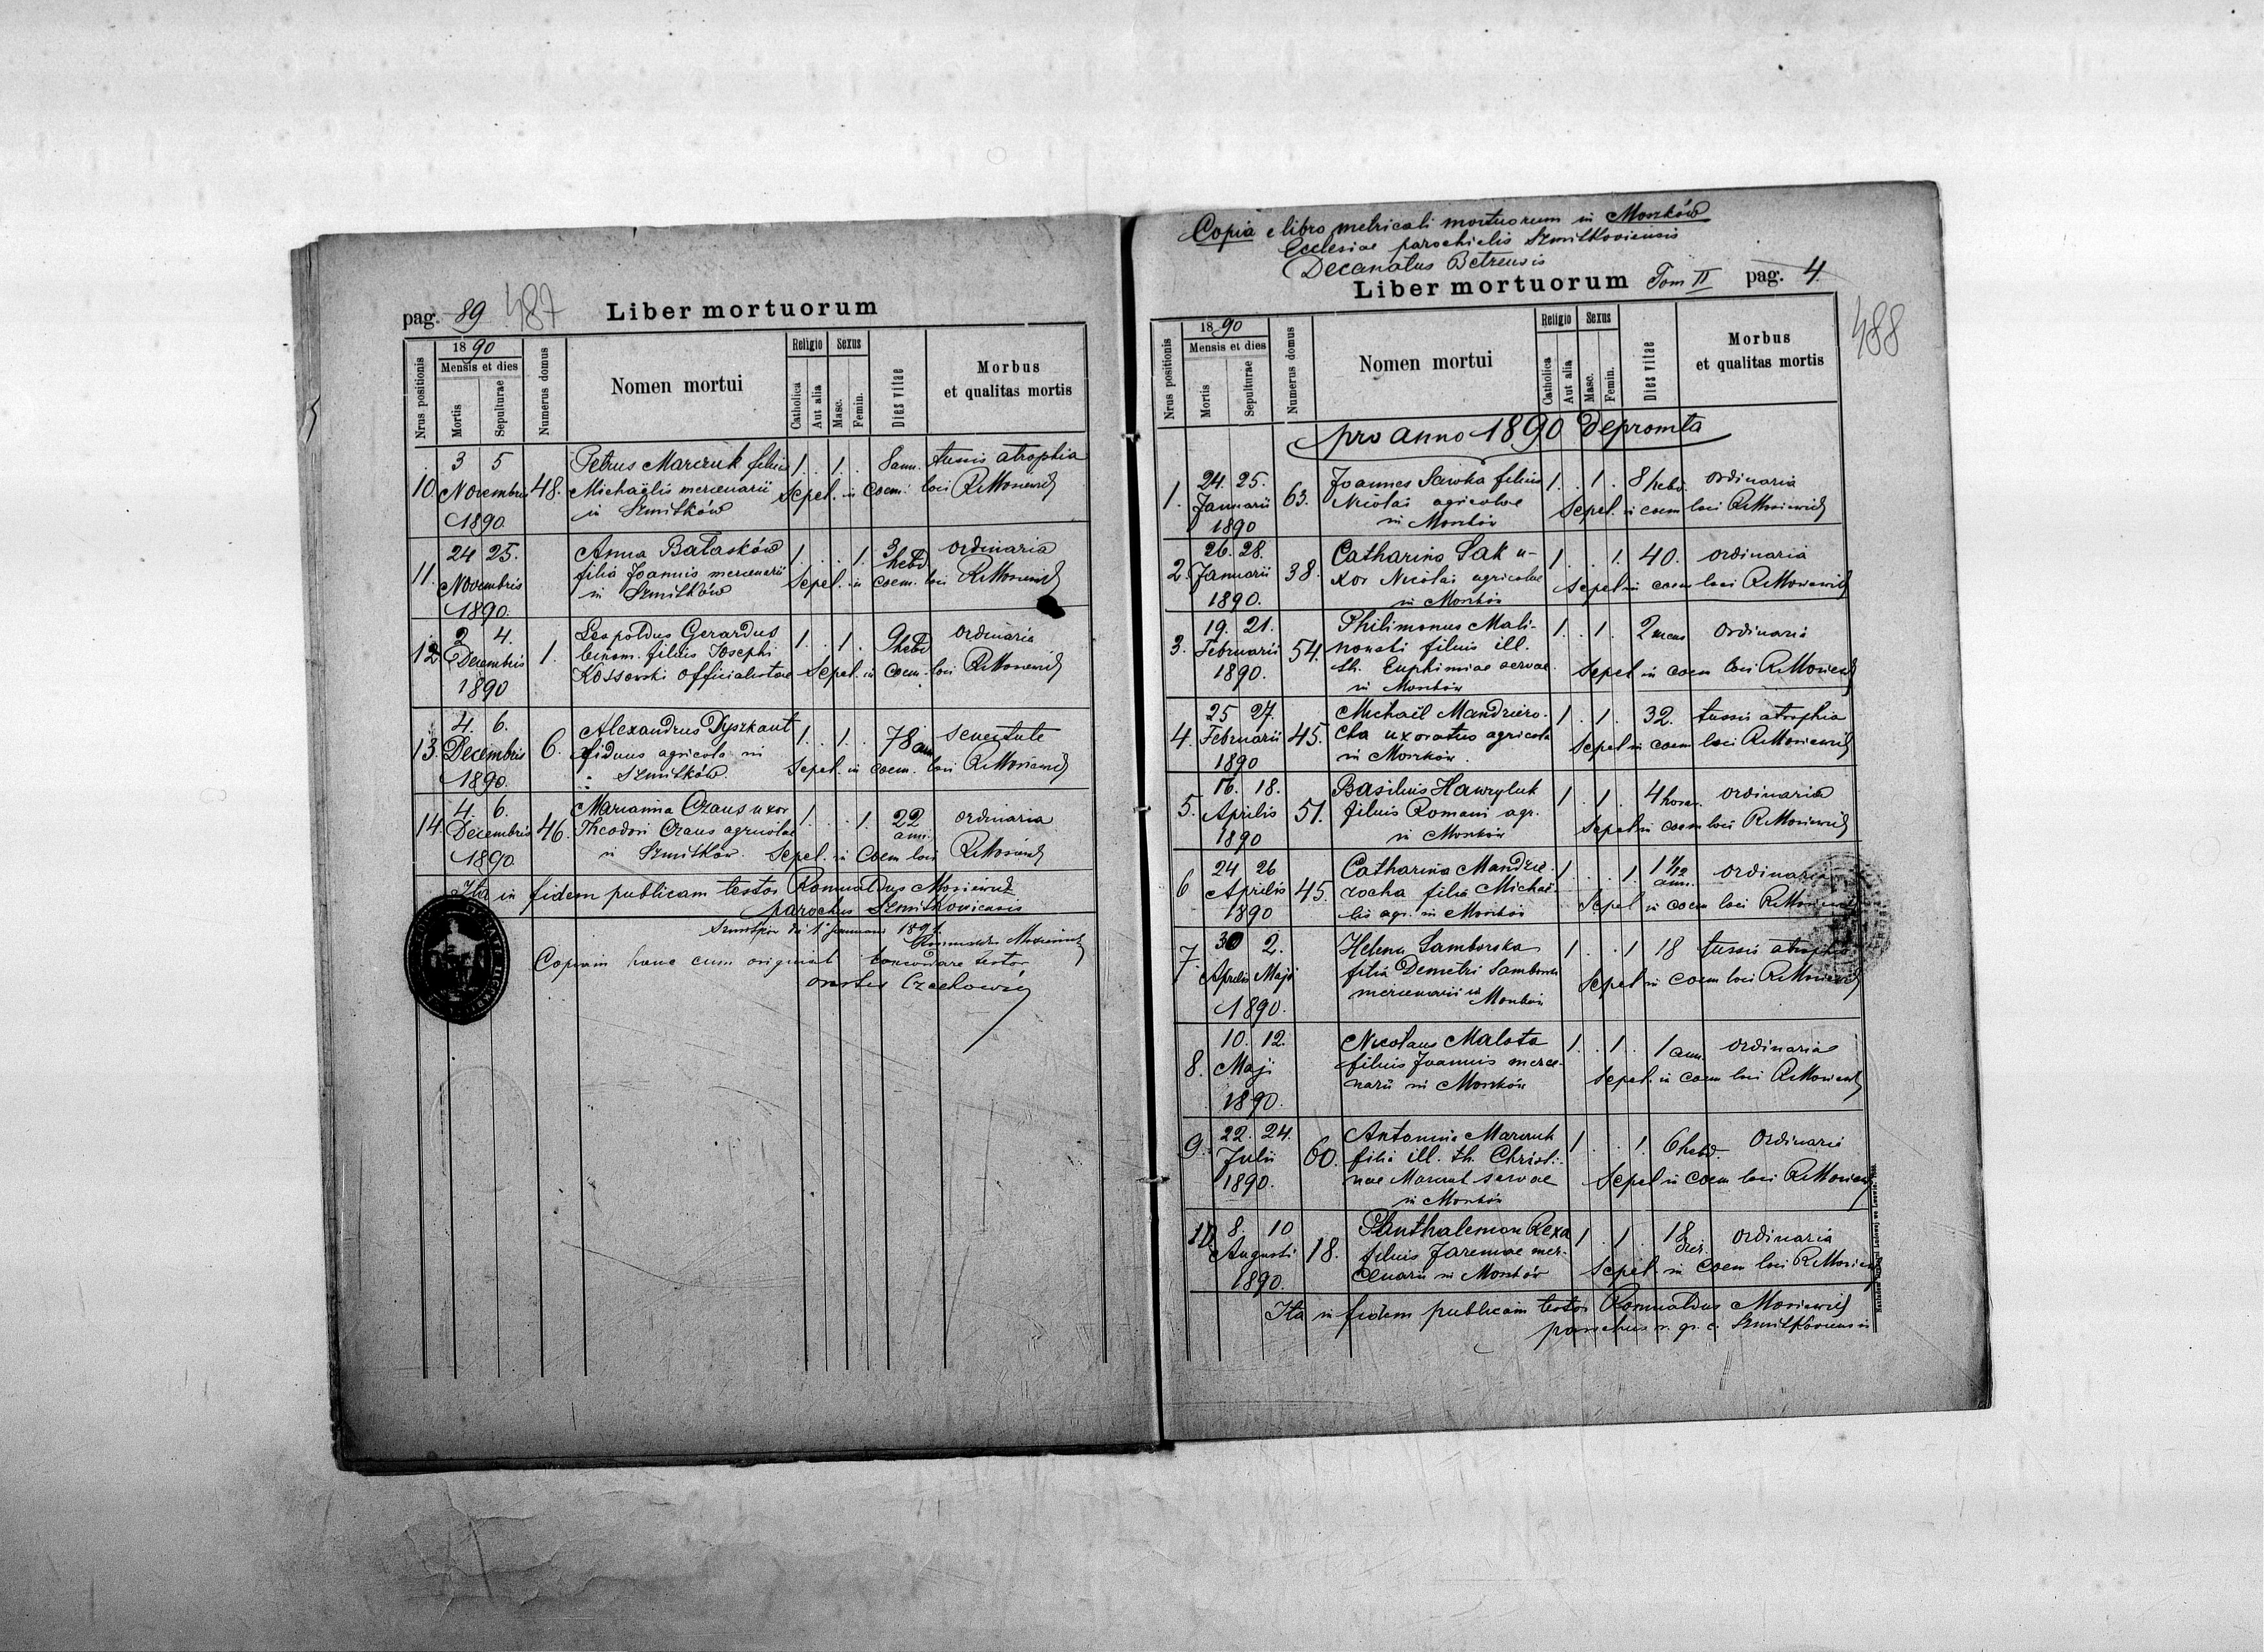 pag. 89 487 Liber mortuorum
Nrus positionis
1890
Mensis et dies
Mortis
Sepulturae
Numerus domus
Nomen mortui
Religio
Catholica
Aut alia
Sexus
Masc.
Femin.
Dies vitae
Morbus
et qualitas mortis
3 5 Petrus Marczuk filius 1. 1. 8 ann. tussis atrophia
10. Novembris 48. Michaëlis mercenarii Sepel. in Coem. loci RMosiewicz
1890 in Szmitków
24 25. Anna Bałasków 1. 1. 3 hebd ordinaria
11. Novembris filia Joannis mercenarii Sepel. in coem. loci RMosiewicz
1890. in Szmitków
2 4. Leopoldus Gerardus 1. 1. 9 hebd ordinaria
12 Decembris 1. binom. filius Josephi
1890 Kossowski officialistae Sepel. in coem. loci RMosiewicz
4. 6. Alexandrus Dyszkant 1. 1. 78 ann senectute
13. Decembris 6. viduus agricola in Sepel. in coem. loci RMosiewicz
1890. Szmitków.
4. 6. Marianna Czaus uxor 1. 1. 22 ann. ordinaria
14 Decembris 46. Theodori Czaus agricolae
1890 in Szmitków. Sepel. in Coem loci RMosiewicz
Ita in fidem publicam testor Romualdus Mosiewicz
parochus Szmitkoviensis
Szmitków die 1 Januarii 1891
Romualdus Mosiewicz
Copiam hanc cum originali concordare testor
Czechowicz
Copia e libro metricali mortuorum in Moszków
Ecclesiae parochialis Szmitkoviensis
Decanatus Belzensis
Liber mortuorum Tom II pag. 4.
488
Nrus positionis
1890
Mensis et dies
Mortis
Sepulturae
Numerus domus
Nomen mortui
Religio
Catholica
Aut alia
Sexus
Masc.
Femin.
Dies vitae
Morbus
et qualitas mortis
pro anno 1890 depromta
24 25. Joannes Sawka filius 1. 1. 8 hebd. ordinaria
1. Januarii 63. Nicolai agricolae Sepel. in coem loci RMosiewicz
1890 in Moszków
26. 28. Catharina Sak u- 1. 1. 40. ordinaria
2. Januarii 38. xor Nicolai agricolae Sepel in coem loci RMosiewicz
1890. in Moszków
19. 21. Philimonus Mali- 1. 1. 2 mens ordinaria
3. Februarii 54. nowski filius ill.
1890. th. Euphimiae servae Sepel in coem loci RMosiewicz
in Moszków
25 27. Michaël Mandziro- 1. 1. 32. tussis atrophia
4. Februarii 45. cha uxoratus agricola Sepel in coem loci RMosiewicz
1890 in Moszków.
16. 18. Basilius Hawryluk 1. 1. 4 hor. ordinaria
5. Aprilis 51. filius Romani agr. Sepel in coem loci RMosiewicz
1890 in Moszków
24 26 Catharina Mandzi- 1. 1. 1 1/12 ann. ordinaria
6 Aprilis 45. rocha filia Michaë- Sepel in coem loci RMosiewicz
1890 lis agr. in Moszków
30 2. Helena Samborska 1. 1 18 tussis atrophia
7. Aprilis Maji filia Demetri Samborski Sepel in coem loci RMosiewicz
1890. mercenarii in Moszków
10. 12. Nicolaus Malota 1. 1. 1 ann. ordinaria
8. Maji filius Joannis merce- Sepel. in coem loci RMosiewicz
1890. narii in Moszków
22. 24. Antonina Marczuk 1. 1. 6 hebd. ordinaria
9. Julii 60. filia ill. th. Christi- Sepel in coem loci RMosiewicz
1890. nae Marczuk servae
in Moszków
10 8. 10 Panthalemon Rexa 1. 1. 18 dier. ordinaria
Augusti 18. filius Jaremae mer- Sepel. in coem loci RMosiewicz
1890. cenarii in Moszków
Ita in fidem publicam testor Romualdus Mosiewicz
parochus r. gr. c. Szmitkoviensis